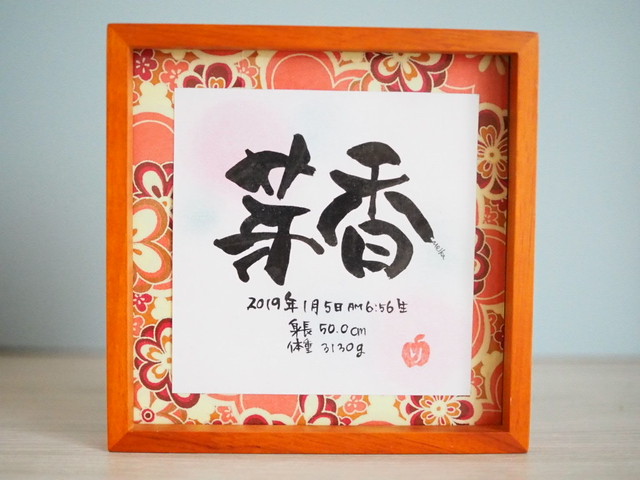 芽香
2019年1月5日AM6:56生
身長 50.0cm
体重 3130g
り